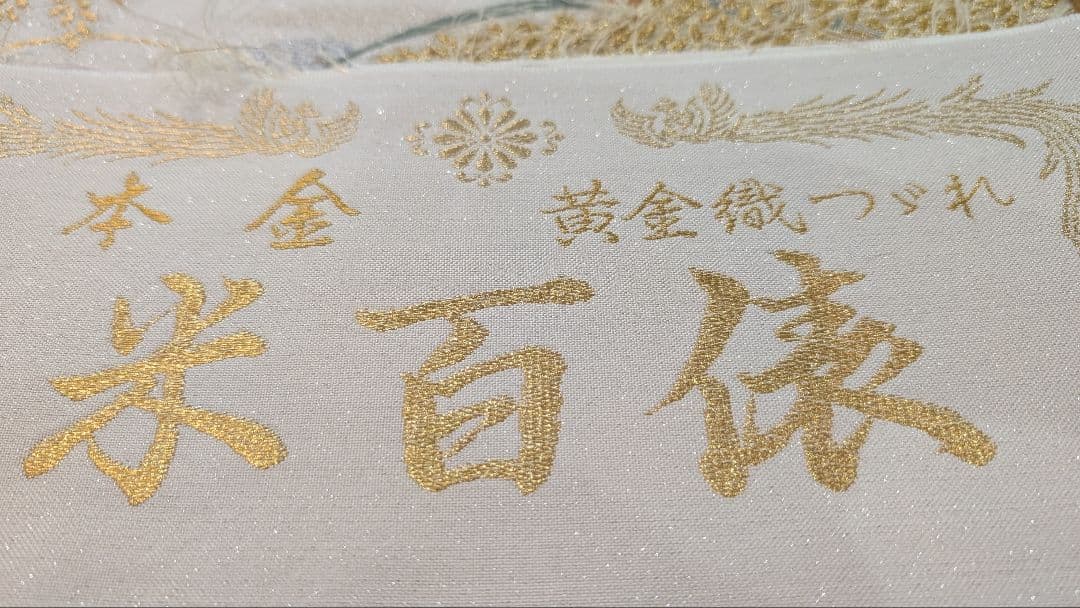 本金 黄金織つづれ
米百俵